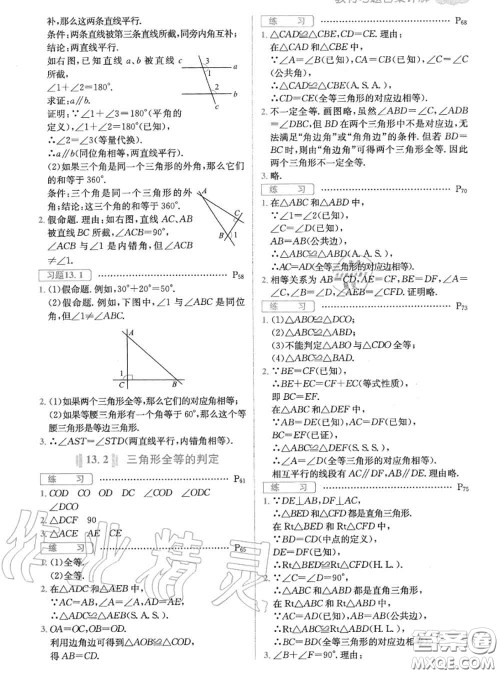 补,那么这两条直线平行.
条件:两条直线被第三条直线所截,同旁内角互补;
结论:两直线平行.
如右图,已知直线 a,b 被直线 c
所截,
∠1+∠2=180°.
求证:a∥b.
证明:∵∠1+∠3=180°(平角的
定义),∠1+∠2=180°(已知),
∴∠2=∠3(等量代换).
∴a∥b(同位角相等,两直线平行).
(2)如果三个角是同一个三角形的外角,那么它们
的和等于360°.
条件:三个角是同一个三角形的外
角;结论:这三个角的和等于360°.
2. 假命题. 理由:如右图,直线 AC、AB
被直线 BC 所截,∠ACB=90°,
∠ACB 与∠1 是内错角,但∠ACB
≠∠1.
习题13. 1 P58
1. (1)假命题. 例如,30°+20°=50°.
(2)假命题. 例如,下图中,∠1 与∠ABC 是同位
角,但∠1≠∠ABC.
2. (1)如果两个三角形全等,那么它们的对应角相等;
(2)如果等腰三角形有一个角等于60°,那么这个
三角形是等边三角形.
3. ∴∠AST=∠STD(两直线平行,内错角相等).
13. 2 三角形全等的判定
练 习 P61
1. COD CO OD DC ∠COD ∠OCD
∠CDO
2. △DCF 90
3. △ACE AE CE
练 习 P65
1. (1)全等.
(2)全等.
2. 在△ADC 和△AEB 中,
∵AC=AB,∠A=∠A,AD=AE,
∴△ADC≌△AEB(S.A.S.).
3. OA=OC,OB=OD.
利用边角边可得到△AOB≌△COD,
得 AB=CD.
练 习 P68
1. △CAD≌△CBE,CD=CE. 理由:
在△CAD 和△CBE 中,
∵∠A=∠B(已知),AC=BC(已知),∠C=∠C
(公共角),
∴△CAD≌△CBE(A.S.A.),
∴CD=CE(全等三角形的对应边相等).
2. 不一定全等. 画图略,虽然∠ABC=∠D,∠ADB
=∠DBC,但 BD 在两个三角形中不是对应边,无
法满足“角边角”或“角角边”的条件. 但若 BD=
BC 时,则由“角边角”可得两个三角形全等. 因
此,两个三角形不一定全等.
3. 略.
练 习 P70
1. 在△ABC 和△ABD 中,
∵∠1=∠2(已知),
AB=AB(公共边),
∴△ABC≌△ABD(A.A.S.),
∴AC=AD(全等三角形的对应边相等).
2. 相等关系为 AB=CD,AE=CF,BE=DF,∠A=
∠C,∠B=∠D,∠AEB=∠CFD. 证明略.
练 习 P73
1. (1)△ABC≌△DCB;
(2)△ABO≌△DCO;
(3)不能判定△ABO 与△CDO 全等;
(4)△ABC≌△BAD.
2. ∵BE=CF(已知),
∴BE+EC=CF+EC(等式性质),
即 BC=EF.
在△ABC 和△DEF 中,
∵AB=DE(已知),AC=DF(已知),
BC=EF(已证),
∴△ABC≌△DEF(S.S.S.).
相互平行的线段有 AC∥DF,AB∥DE. 理由略.
练 习 P75
1. ∵DE⊥AB,DF⊥AC,
∴△BDE 和△CFD 都是直角三角形.
在 Rt△BDE 和 Rt△CFD 中,
∵BD=CD(中点的定义),
DE=DF(已知),
∴Rt△BDE≌Rt△CDF(H.L.).
2. ∵∠C=∠D=90°,
∴△ABC 和△ABD 都是直角三角形.
在 Rt△ABC 和 Rt△ABD 中,
∵AC=AD(已知),AB=AB(公共边),
∴Rt△ABC≌Rt△ABD(H.L.),
∴BC=BD(全等三角形的对应边相等).
3. ∠B+∠F=90°. 理由:
作业精灵